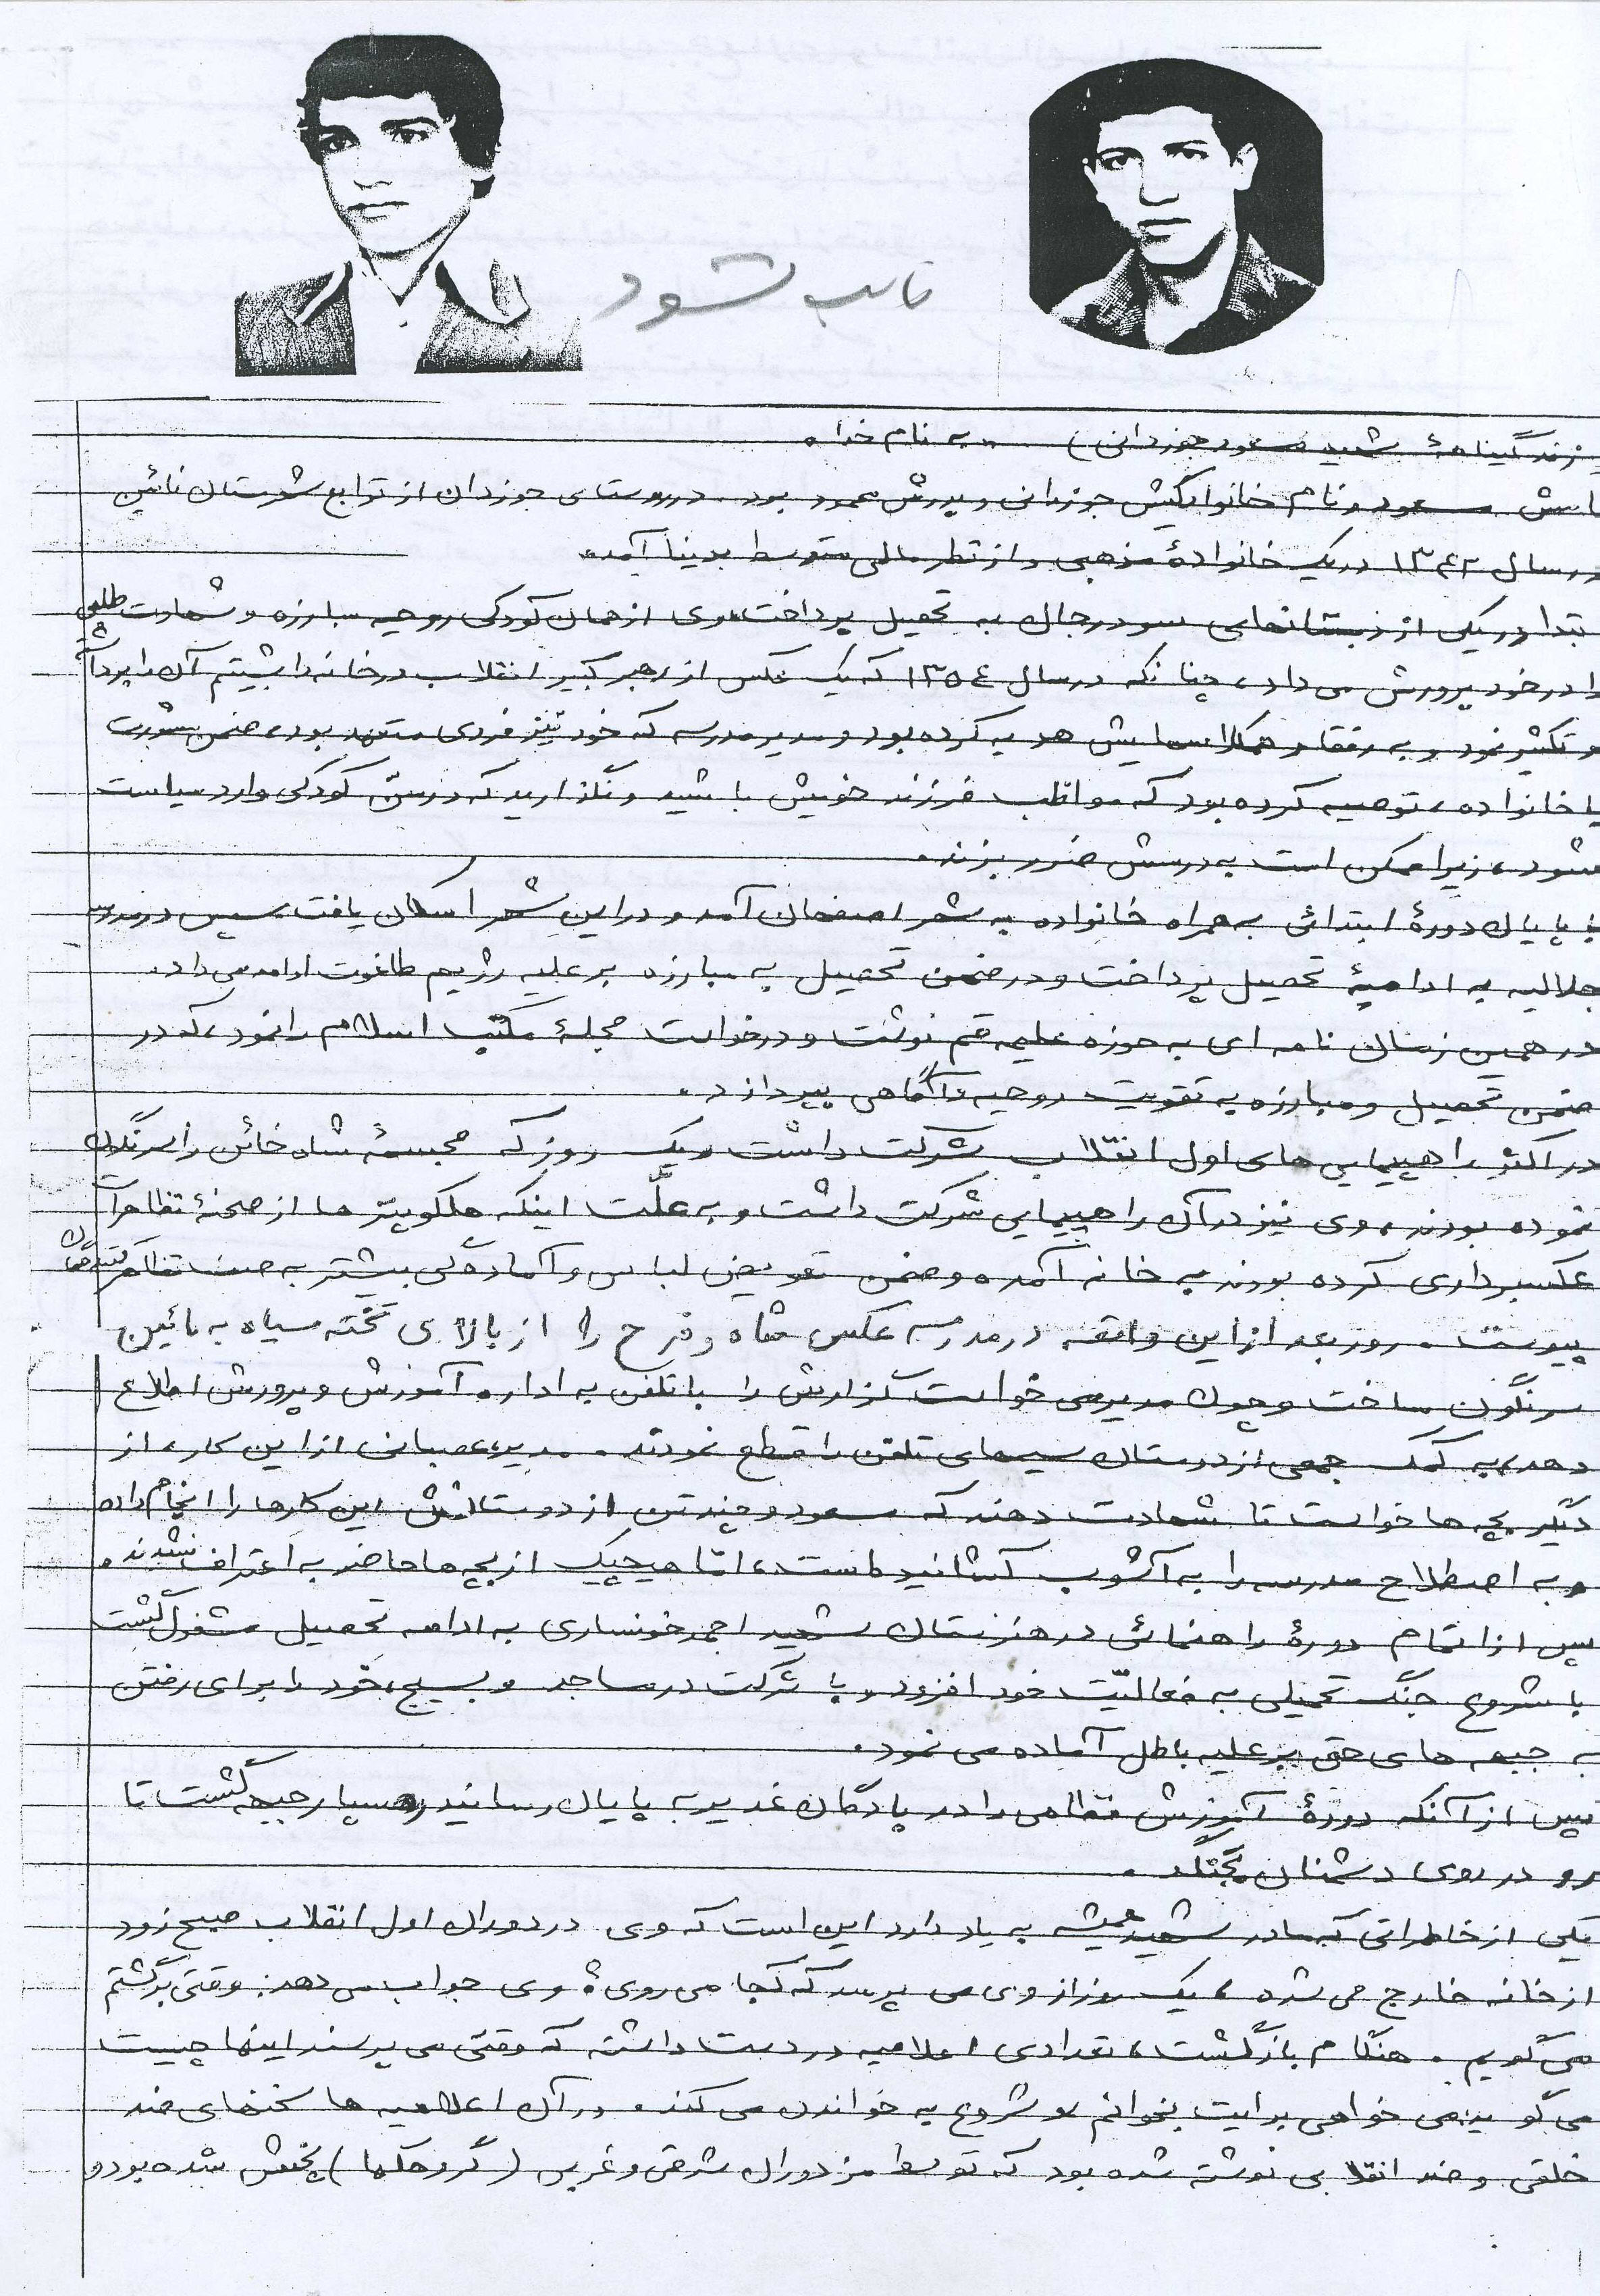 تایپ شود
زندگینامهٔ شهید مسعود جوزدانی) «به نام خدا»
نامش مسعود و نام خانوادگیش جوزدانی و پدرش محمود بود. در روستای جوزدان از توابع شهرستان نائین
در سال ۱۳۴۲ در یک خانوادهٔ مذهبی و از نظر مالی متوسط بدینا آمد.
بتدا در یکی از دبستانهای سودرجان به تحصیل پرداخت، وی از همان کودکی روحیه مبارزه و شهادت طلبی
را در خود پرورش می داد، چنانکه در سال ۱۳۵۴ که یک عکس از رهبر کبیر انقلاب در خانه داشتیم آن را برداشته
و تکثیر نمود و به رفقا و همکلاسهایش هدیه کرده بود و مدیر مدرسه که خود نیز فردی متعهد بود، ضمن مشورت
با خانواده، توصیه کرده بود که مواظب فرزند خویش باشید و نگذارید که در سنّ کودکی وارد سیاست
شود، زیرا ممکن است به درسش ضرر بزند.
با پایان دورهٔ ابتدائی به همراه خانواده به شهر اصفهان آمد و در این شهر اسکان یافت سپس در مدرسه
جلالیه به ادامهٔ تحصیل پرداخت و در ضمن تحصیل به مبارزه بر علیه رژیم طاغوت ادامه می داد.
در همین زمان نامه ای به حوزه علیمه قم نوشت و درخواست مجلهٔ مکتب اسلام را نمود، که در
ضمن تحصیل و مبارزه به تقویت روحیه و آگاهی بپردازد.
در اکثر راهپیمایی های اول انقلاب شرکت داشت و یک روز که مجسمهٔ شاه خائن را سرنگون
نموده بودند، وی نیز در آن راهپیمایی شرکت داشت و به علّت اینکه هلکوپتر ها از صحنهٔ تظاهرات
عکسبرداری کرده بودند به خانه آمده و ضمن تعویض لباس و آمادگی بیشتر به صف تظاهرکنندگان
پیوست. روز بعد از این واقعه در مدرسه عکس شاه و فرح را از بالای تخته سیاه به پائین
سرنگون ساخت و چون مدیر می خواست گزارش را با تلفن به اداره آموزش و پرورش اطلاع
دهد، به کمک جمعی از دوستان سیمهای تلفن را قطع نمودند. مدیر، عصبانی از این کار، از
دیگر بچه ها خواست تا شهادت دهند که مسعود و چند تن از دوستانش این کارها را انجام داده
و به اصطلاح مدرسه را به آشوب کشانیده است، امّا هیچیک از بچه ها حاضر به اعتراف نشدند.
پس از اتمام دورهٔ راهنمائی در هنرستان شهید احمد خونساری به ادامه تحصیل مشغول گشت
با شروع جنگ تحمیلی به فعالیّت خود افزود و با شرکت در مساجد و بسیج، خود را برای رفتن
به جبهه های حق بر علیه باطل آماده می نمود.
پس از آنکه دورهٔ آموزش نظامی را در پادگان غدیر به پایان رسانید رهسپار جبهه گشت تا
رو در روی دشمنان بجنگد.
یکی از خاطراتی که مادر شهید همیشه به یاد دارد این است که وی در دوران اول انقلاب صبح زود
از خانه خارج می شده، یک روز از وی می پرسد که کجا می روی؟ وی جواب می دهد: وقتی برگشتم
می گویم. هنگام بازگشت، تعدادی اعلامیه در دست داشته که وقتی می پرسند اینها چیست
می گوید: می خواهی برایت بخوانم و شروع به خواندن می کند. در آن اعلامیه ها سخنهای ضد
خلقی و ضد انقلابی نوشته شده بود که توسط مزدوران شرقی و غربی (گروهکها) پخش شده بود و